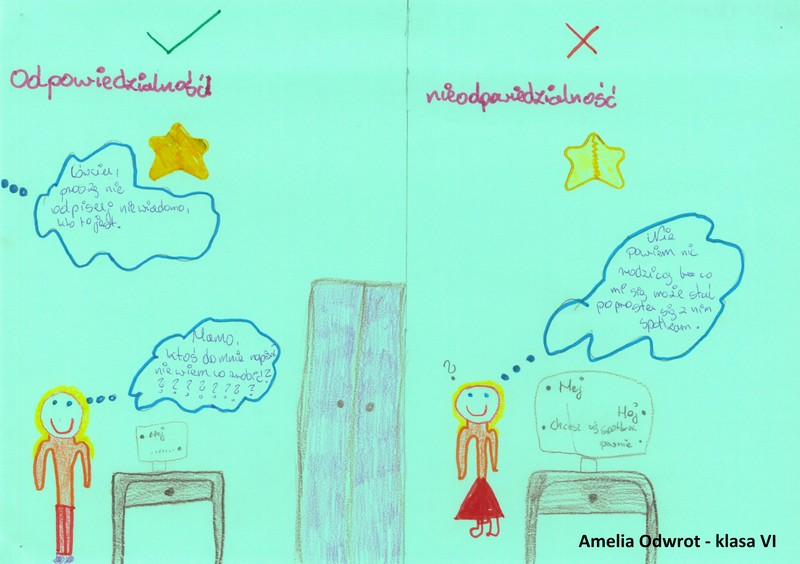 Odpowiedzialność
proszę nie
odpisuj nie wiadomo,
kto to jest.
Mamo,
ktoś do mnie napisał
nie wiem co zrobić?
???????
Hej
.......
nieodpowiedzialność
Nie
powiem nic
rodzicą bo co
mi się może stać
po prostu się z nim
spotkam.
?
Hej
Hej
Chcesz się spotkać
pewnie
Amelia Odwrot - klasa VI